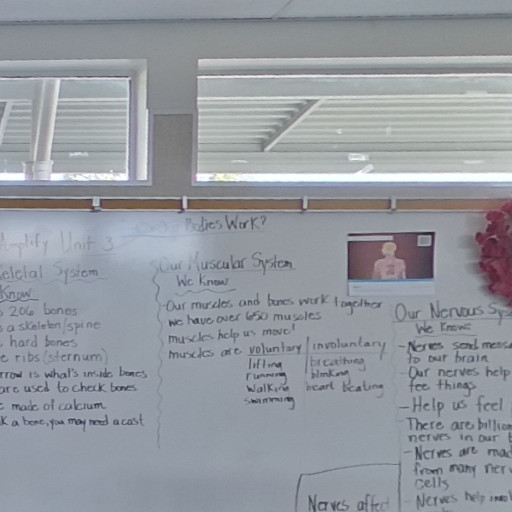 Bodies Work?
Amplify Unit 3
eletal System
Know
206 bones
s a skeleton/spine
hard bones
e ribs (sternum)
rrow is what's inside bones
are used to check bones
made of calcium
k a bone, you may need a cast
Our Muscular System
We Know
Our muscles and bones work together
we have over 650 muscles
muscles help us move!
muscles are voluntary involuntary
lifting breathing
running blinking
walking heart beating
swimming
Our Nervous Sys
We Know
- Nerves send mess
to our brain
- Our nerves help
feel things
- Help us feel
- There are billion
nerves in our b
- Nerves are mad
from many ner
cells
- Nerves help
Nerves affect